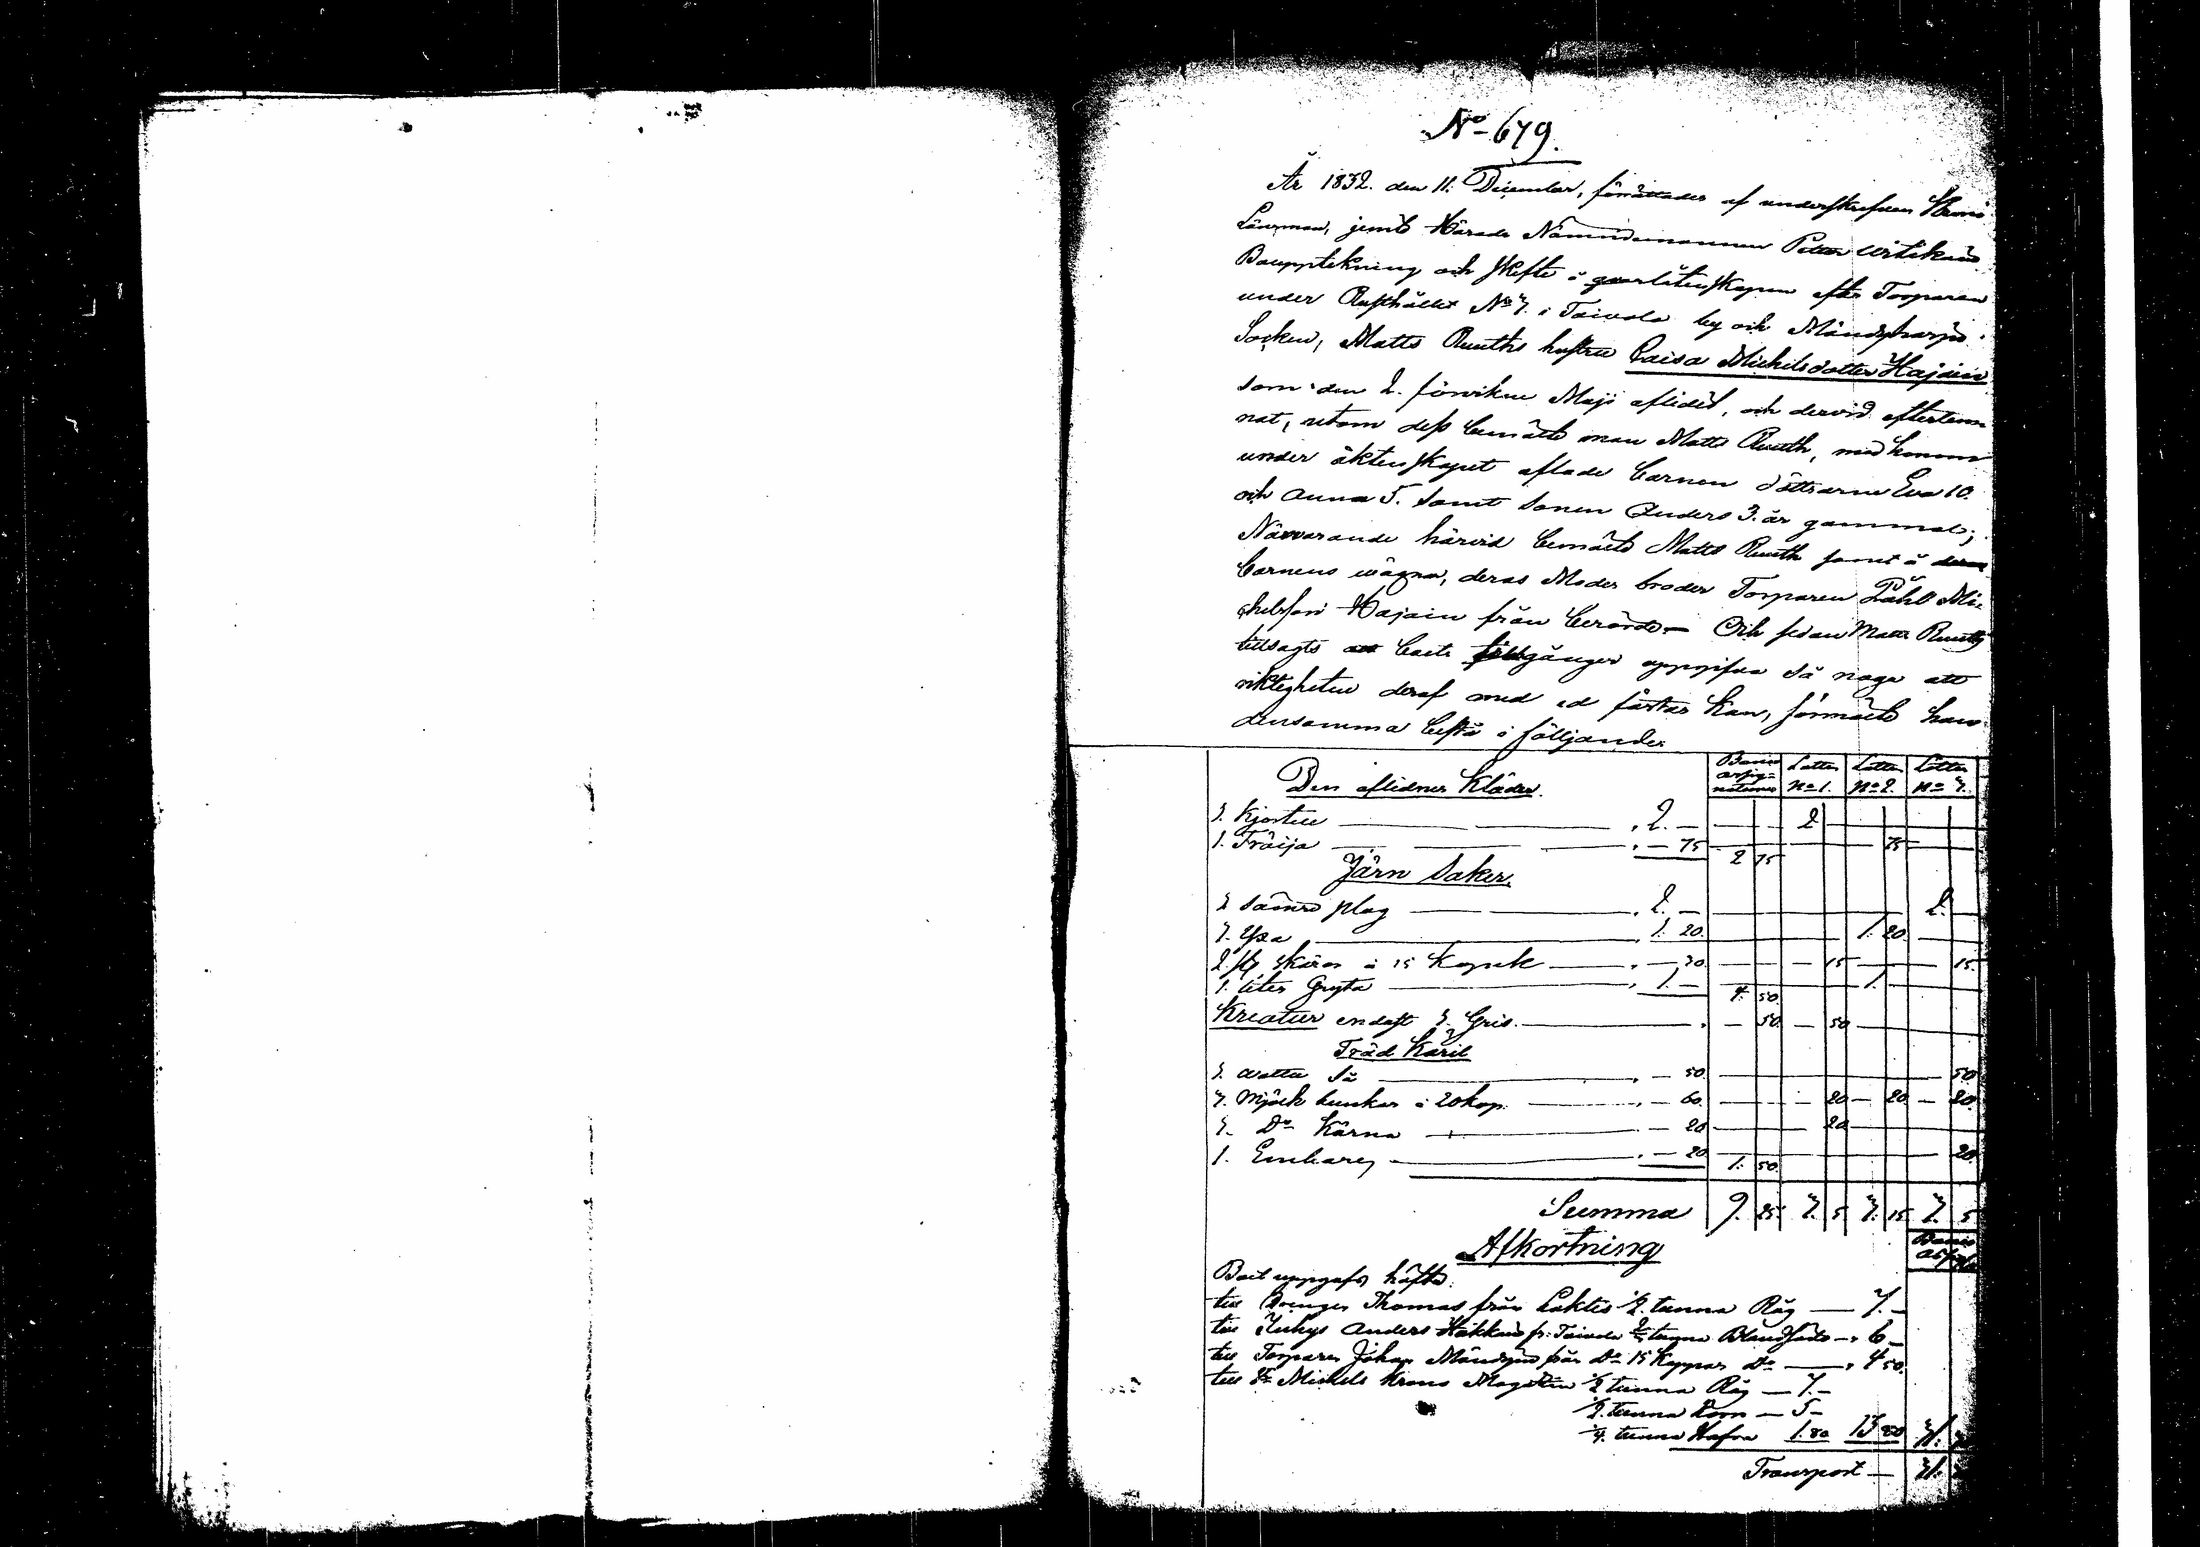 No 679.
År 1832. den 11. December, förrättades af underskrefven Krono
Länsman, jemte Härads Nämndemannen Petter
Bouppteckning och skifte i qvarlåtenskapen efter Torparen
under Rusthållet No 7. i Toivola by och Mändyharju
Socken, Matts Ruuths hustru Caisa Michelsdotter Hajain
som den 2. förvikne Maji aflidit, och dervid efterlem
nat, utom dess bemälte man Matts Ruuth, med honom
under äktenskapet aflade barnen döttrarne Eva 10.
och Anna 5. samt sonen Anders 3. år gammal;
Närvarande härvid bemälte Matts Ruuth samt å
barnens wägnar, deras Moder broder Torparen Påhl Mi-
chelsson Hajain från berörde — Och sedan Matts Ruuth
tillsagts att boets tillgångar uppgifva så noga att
riktigheten deraf med ed fästas kan, förmälte han
densamma bestå i följande
Den aflidnes Kläder. Banco assignationer Lotten No 1. Lotten No 2. Lotten No 3.
1. Kjortell — 2. — 2
1. Tröija — 75 2 75 75
Järn Saker.
1 plog — 2. — 2.
1. Yxa — 1. 20. 1. 20.
2. st. skäror à 15 Kopek — 30. 15 15.
1. Gryta — 1. — 4. 50. 1.
Kreatur endast 1. Gris. — 50. — 50
Träd Käril
1. Så — 50. 50
3. Mjölk bunkar à 20 kop. — 60. 20 — 20 — 20.
1. Do Kärna — 20 20
1. Embare — 20 1. 50. 20.
Summa 9. 25. 3. 5 3. 15 3. 5
Afkortning Banco
Boet uppgafs häfta:
till Thomas från Laktis 1/2. tunna Råg — 7. —
till Anders Häkkäin fr. Toivola tunna Blandsäd — 6 —
till Torparen Johan från Do 15 Kappar Do — 4 50.
till St. Michels Krono Magasin 1/2 tunna Råg — 7. —
1/2. tunna Korn — 5 —
1/4. tunna Hafra 1. 80 13 80 31.
Transport — 31.